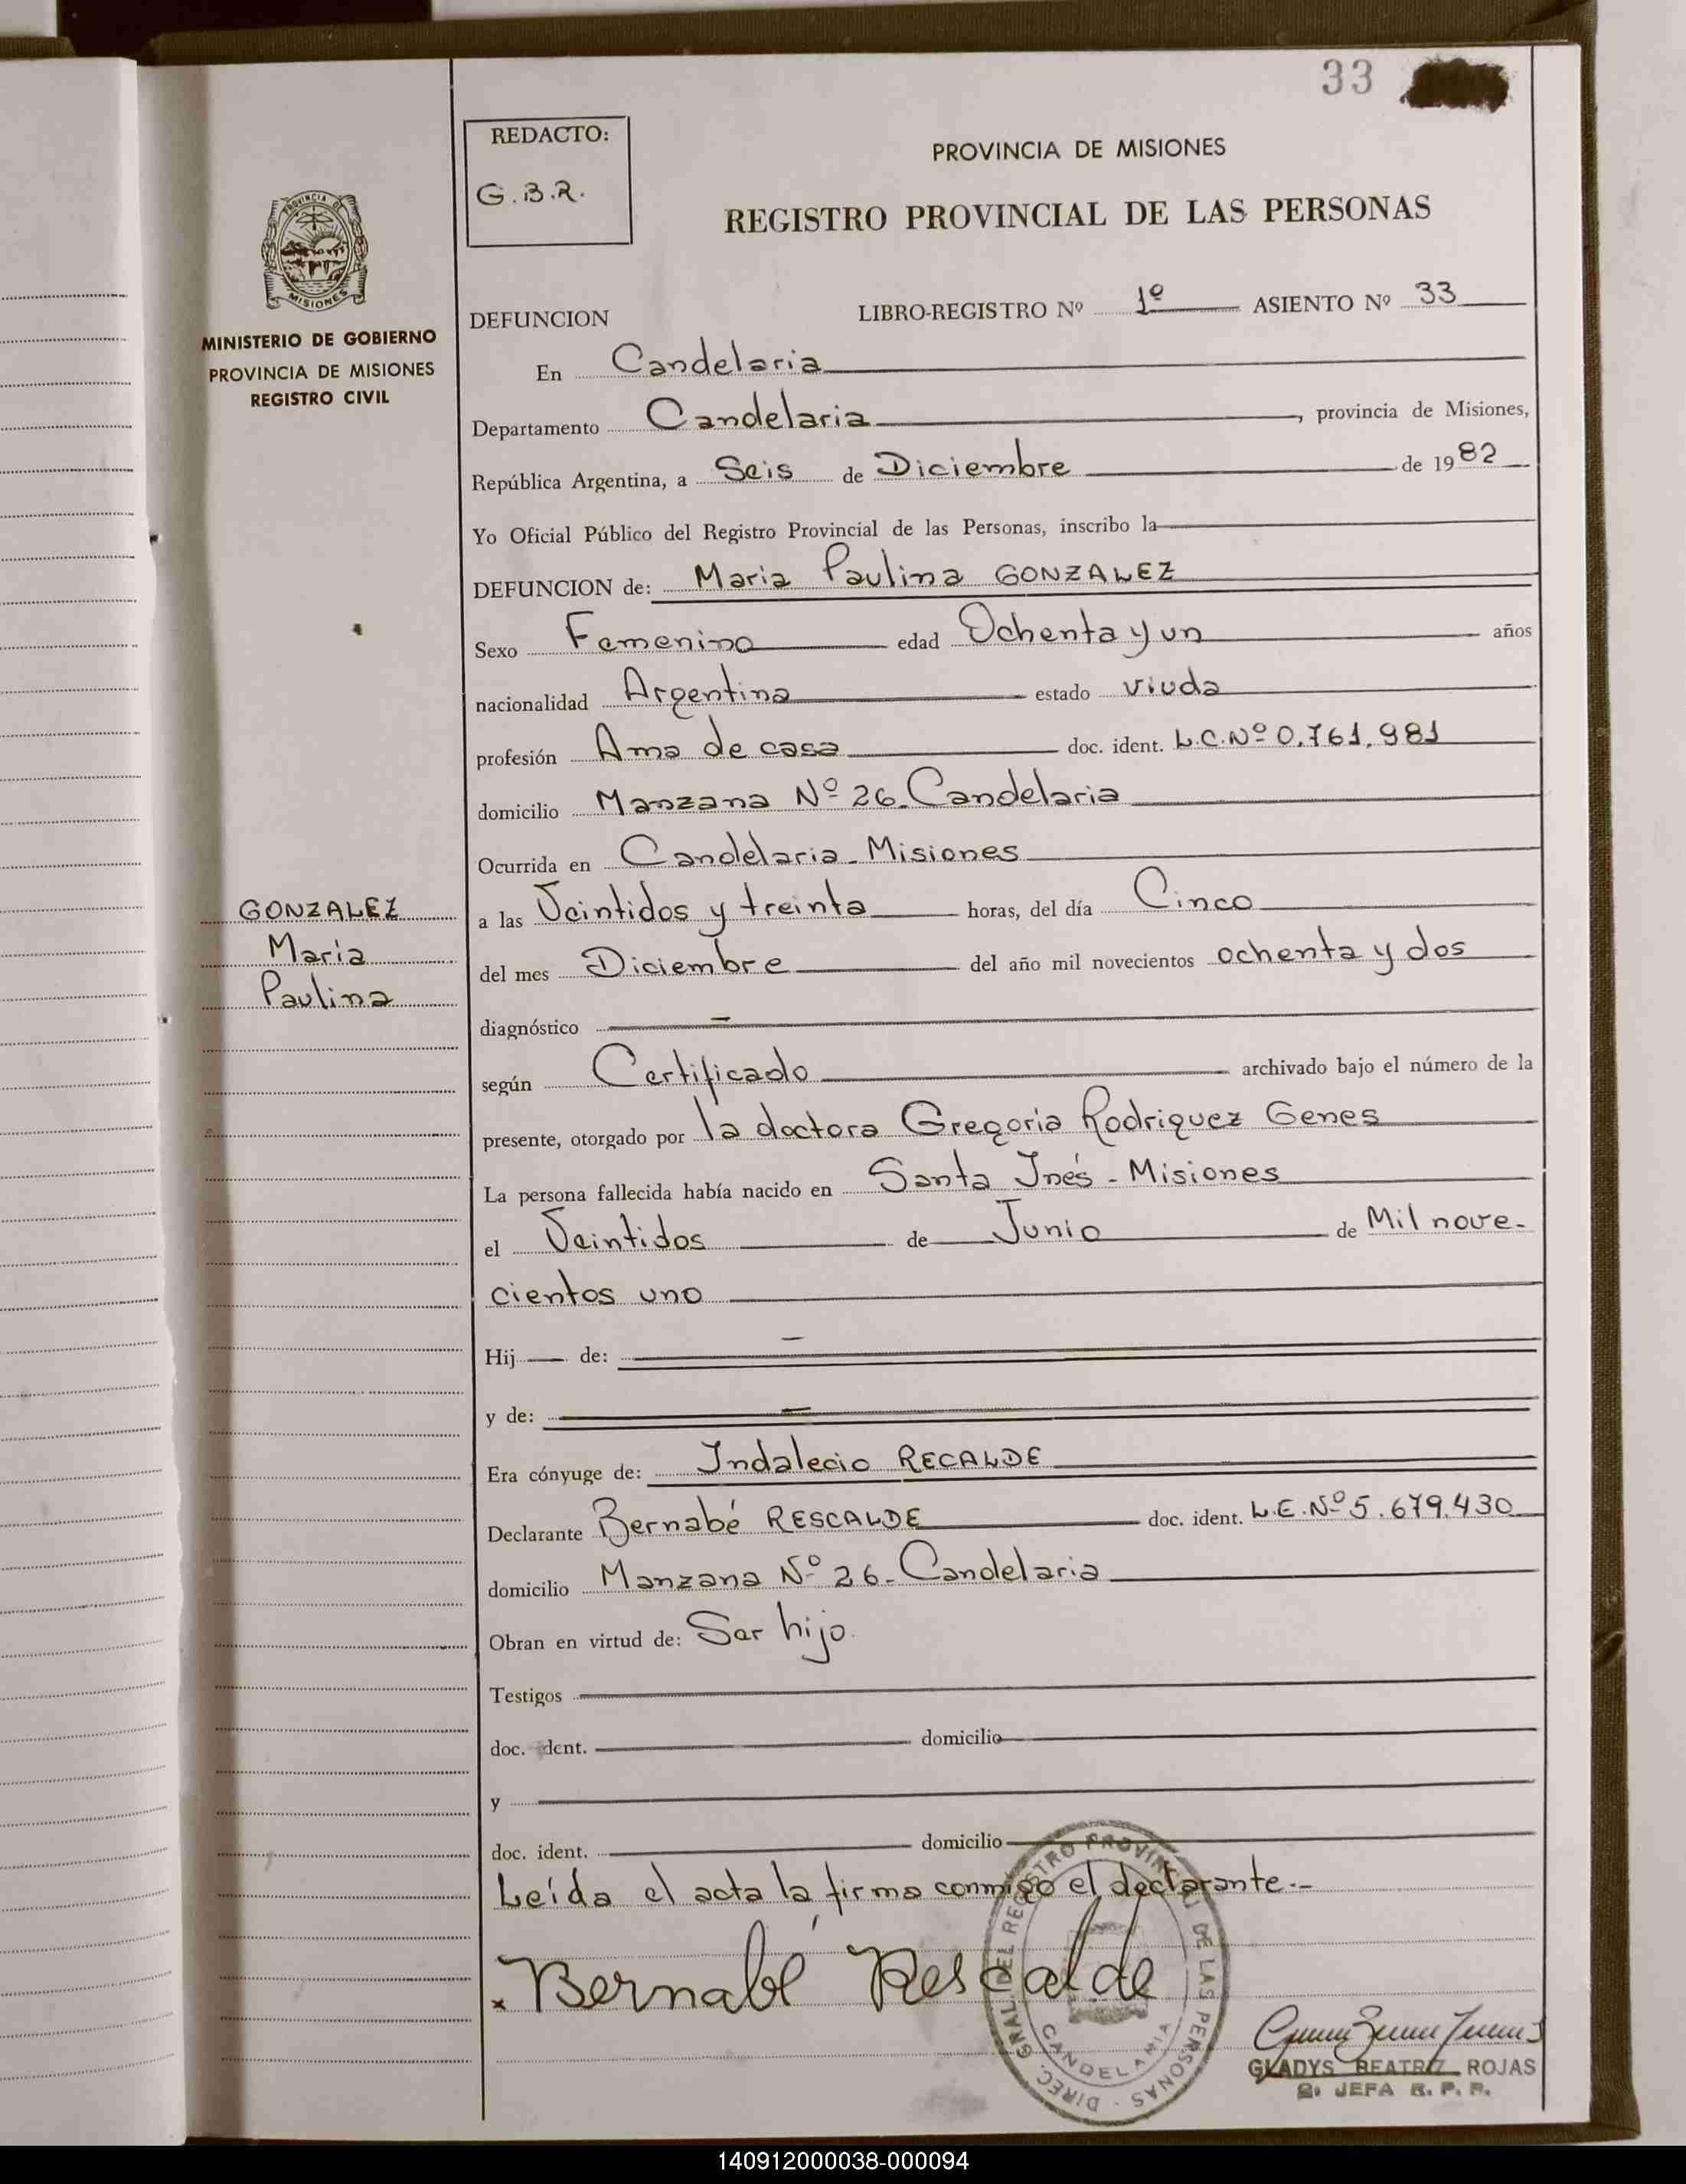 33
REDACTO:
G.B.R.
PROVINCIA DE MISIONES
REGISTRO PROVINCIAL DE LAS PERSONAS
PROVINCIA DE
MISIONES
MINISTERIO DE GOBIERNO
PROVINCIA DE MISIONES
REGISTRO CIVIL
DEFUNCION LIBRO-REGISTRO Nº 1º ASIENTO Nº 33
En Candelaria
Departamento Candelaria, provincia de Misiones,
República Argentina, a Seis de Diciembre de 1982
Yo Oficial Público del Registro Provincial de las Personas, inscribo la
DEFUNCION de: Maria Paulina GONZALEZ
Sexo Femenino edad Ochenta y un años
nacionalidad Argentina estado viuda
profesión Ama de casa doc. ident. L.C.Nº 0.761.981
domicilio Manzana Nº 26_Candelaria
Ocurrida en Candelaria_Misiones
GONZALEZ
Maria
Paulina
a las Veintidos y treinta horas, del día Cinco
del mes Diciembre del año mil novecientos ochenta y dos
diagnóstico
según Certificado archivado bajo el número de la
presente, otorgado por la doctora Gregoria Rodriquez Genes
La persona fallecida había nacido en Santa Inés - Misiones
el Veintidos de Junio de Mil nove-
cientos uno
Hij de:
y de:
Era cónyuge de: Indalecio RECALDE
Declarante Bernabé RESCALDE doc. ident. L.E.Nº 5.679.430
domicilio Manzana Nº 26_Candelaria
Obran en virtud de: Ser hijo.
Testigos
doc. dent. domicilio
y
doc. ident. domicilio
Leída el acta la firma conmigo el declarante.-
x Bernabé Rescalde
DIREC. GRAL. DEL REGISTRO PROVINCIAL DE LAS PERSONAS
CANDELARIA
GLADYS BEATRIZ ROJAS
JEFA R. P. P.
140912000038-000094